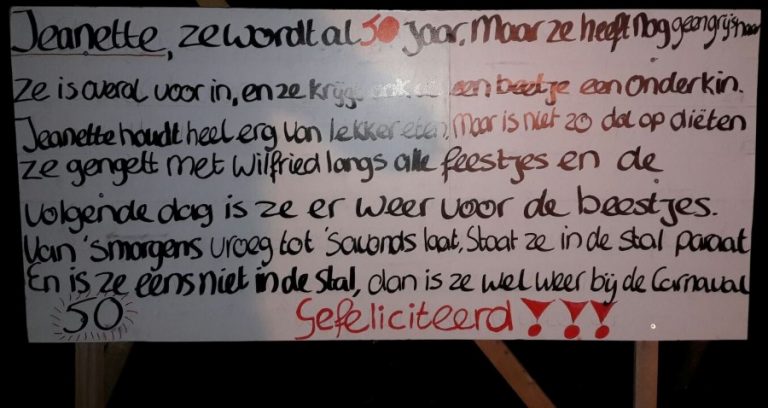 Jeanette, ze wordt al 50 jaar, Maar ze heeft nog geen grijs haar
Ze is overal voor in, en ze krijgt ook al een beetje een onderkin.
Jeanette houdt heel erg van lekker eten, Maar is niet zo dol op diëten
ze gengelt met Wilfried langs alle feestjes en de
volgende dag is ze er weer voor de beestjes.
Van 's morgens vroeg tot 's avonds laat, Staat ze in de stal paraat
En is ze eens niet in de stal, dan is ze wel weer bij de Carnaval
50 Gefeliciteerd !!!